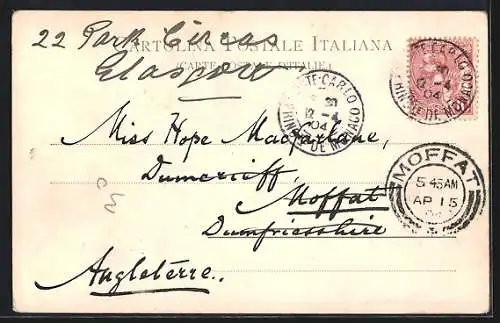 22 Park Circus
Glasgow
CARTOLINA POSTALE ITALIANA
(CARTE POSTALE D'ITALIE)
MONTE-CARLO
12-4
04
PRINCIPAUTÉ DE MONACO
MONTE-CARLO
12-4
04
PRINCIPAUTÉ DE MONACO
Miss Hope Macfarlane,
Dumcrieff,
Moffat
Dumfriesshire
Angleterre.
MOFFAT
5 45AM
AP 15